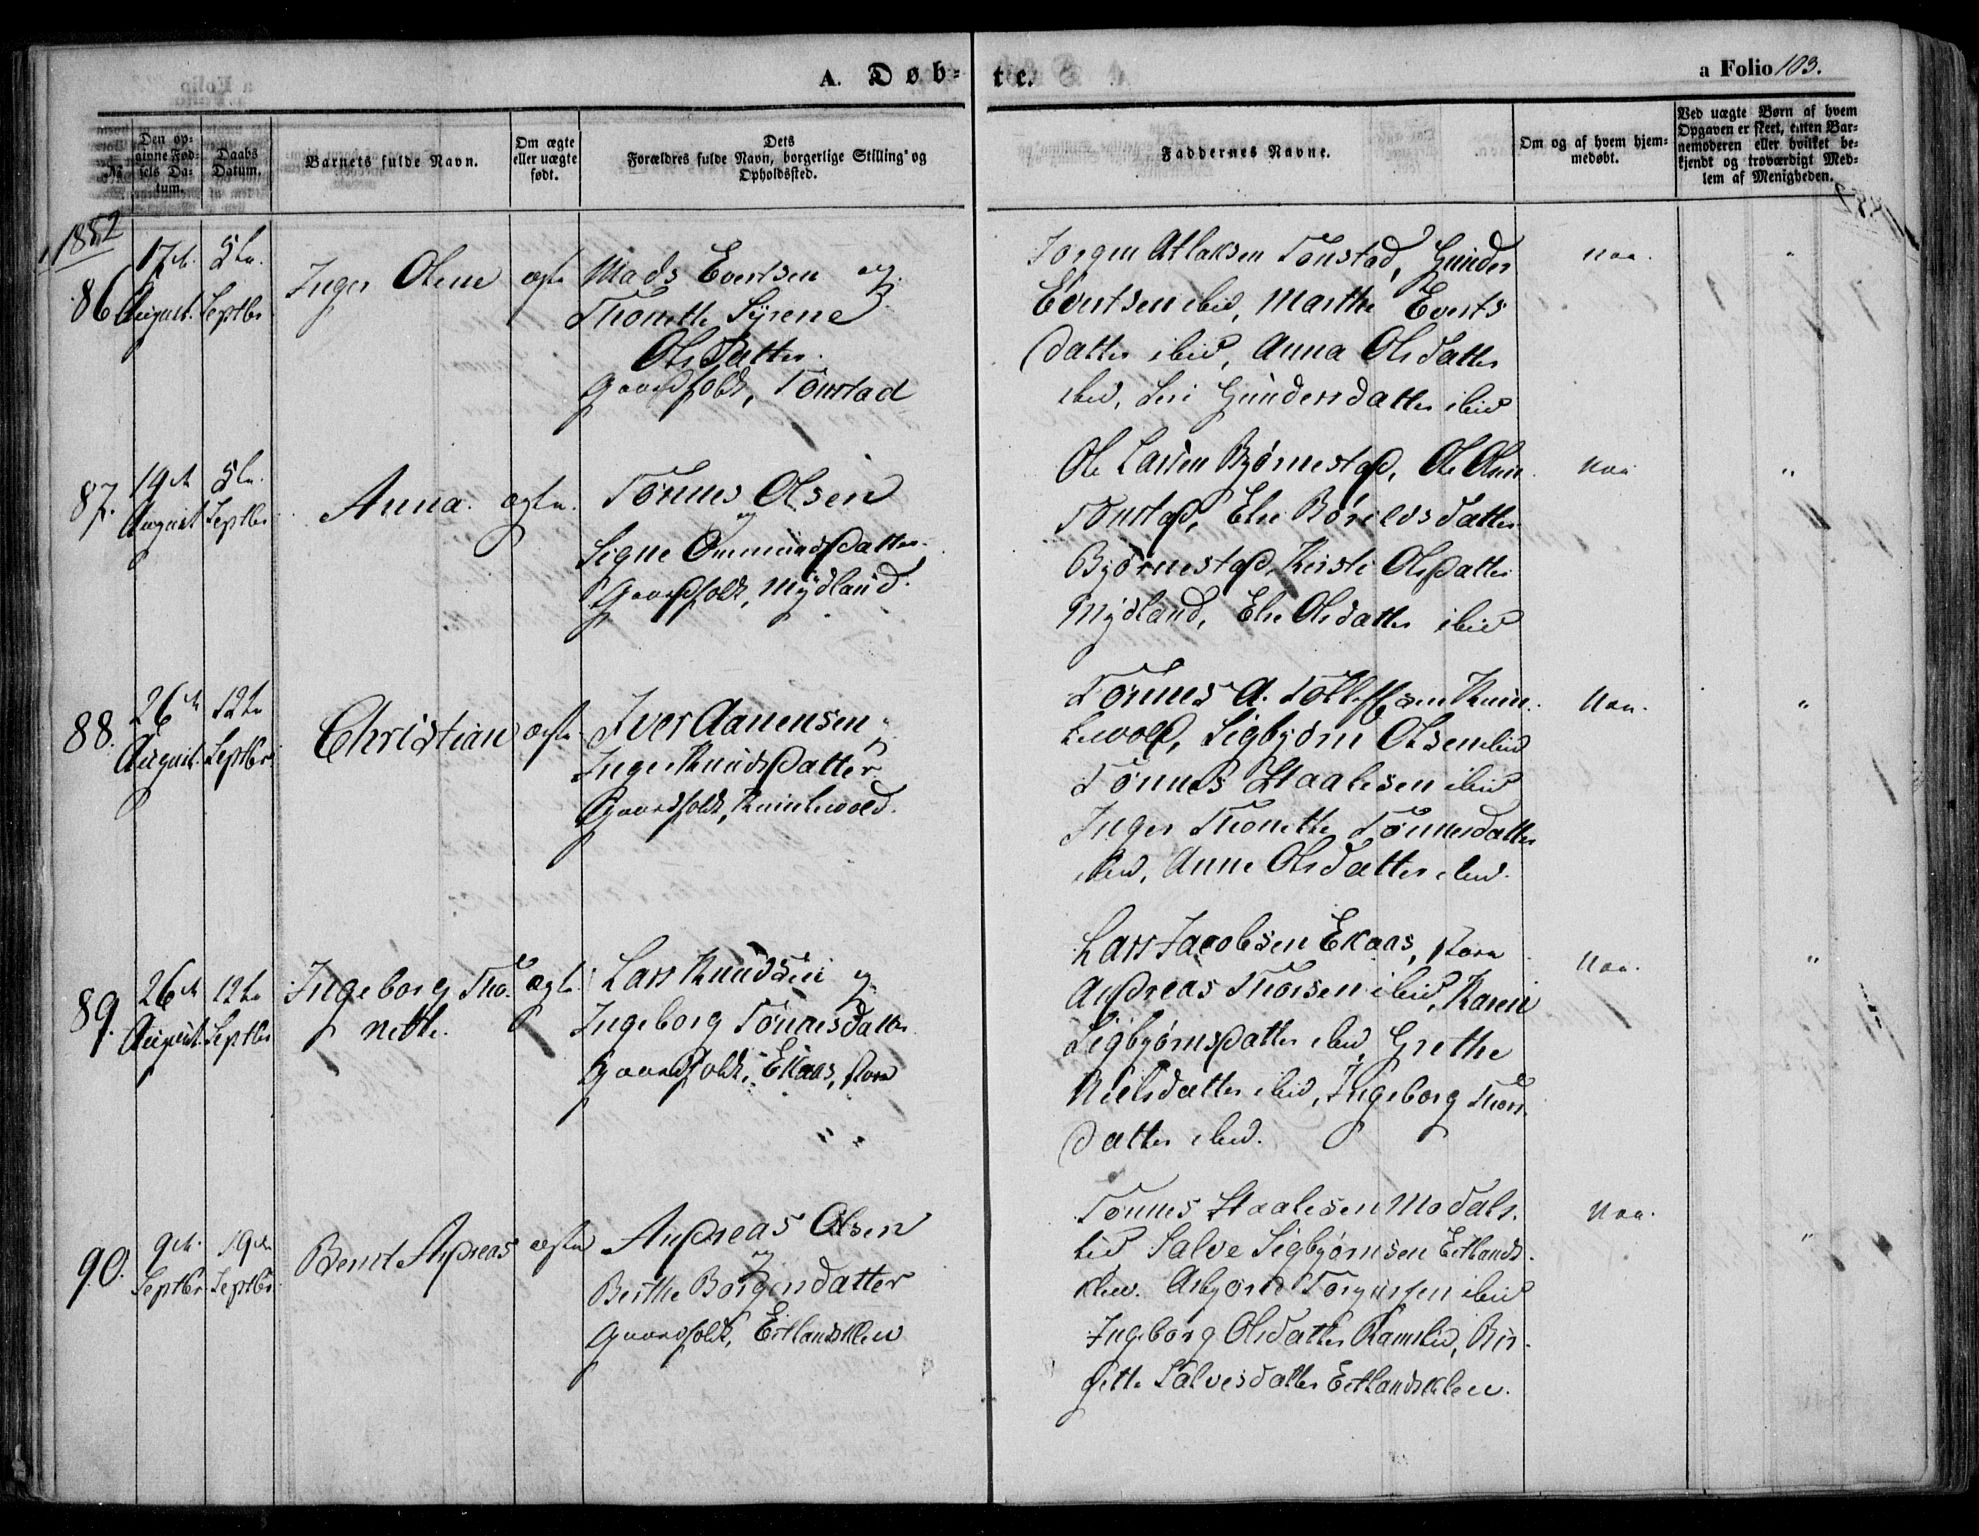 A. Døb-
te.
a Folio 103.
№
Den op-
givne Fød-
sels Da-
tum.
Daabs
Datum.
Barnets fulde Navn.
Om ægte
eller uægte
født.
Dets
Forældres fulde Navn, borgerlige Stilling og
Opholdssted.
Faddernes Navne.
Om og af hvem hjem-
medøbt.
Ved uægte Børn af hvem
Opgaven er skeet, enten Bar-
nemoderen eller hvilket be-
kjendt og troværdigt Med-
lem af Menigheden.
1852
86
17de
August.
5te
Septbr
Inger Oline
ægte
Mads Evertsen og
Thonette Syrene
Olsdatter
Gaardfolk, Tonstad
Jørgen Atlaksen Tonstad, Gunder
Evertsen ibid, Marthe Everts
datter ibid, Anna Olsdatter
ibid, Siri Gundersdatter ibid
Nei.
"
87.
19de
August
5te
Septbr
Anna.
ægte.
Tønnes Olsen
og
Signe Ommundsdatter
Gaardfolk, Mydland.
Ole Larsen Bjørnestad, Ole Olsen
Tonstad, Else Børildsdatter
Bjørnestad, Kirsti Olsdatter
Mydland, Else Olsdatter ibid
Nei
"
88.
26de
August.
12te
Septbr
Christian
ægte
Iver Aanensen
og
Inger Knudsdatter
Gaardfolk, Kvinlewold.
Tønnes A. Tollefsen Kvin-
lewold, Sigbjørn Olsen ibid
Tønnes Staalesen ibid
Inger Thonette Tønnesdatter
ibid, Anne Olsdatter ibid.
Nei.
"
89.
26de
August.
12te
Septbr
Ingeborg Tho-
nette.
ægte
Lars Knudsen og
Ingeborg Tønnesdatter
Gaardfolk, Ekaas, Nora
" "
Lars Jacobsen Ekaas,
Andreas Thorsen ibid, Karen
Sigbjørnsdatter ibid, Grethe
Nielsdatter ibid, Ingeborg Thors
datter ibid.
Nei.
"
90.
9de
Septbr.
19de
Septbr.
Bernt Andreas
ægte
Andreas Olsen
og
Berthe Børgersdatter
Gaardfolk, Eitlandsklev
Tønnes Staalesen Modals-
lid Salve Sigbjørnsen Eitlands-
klev. Asbjørn Torgersen ibid
Ingeborg Olsdatter Ramslid, Bir-
gitte Salvesdatter Eitlandsklev.
Nei.
"